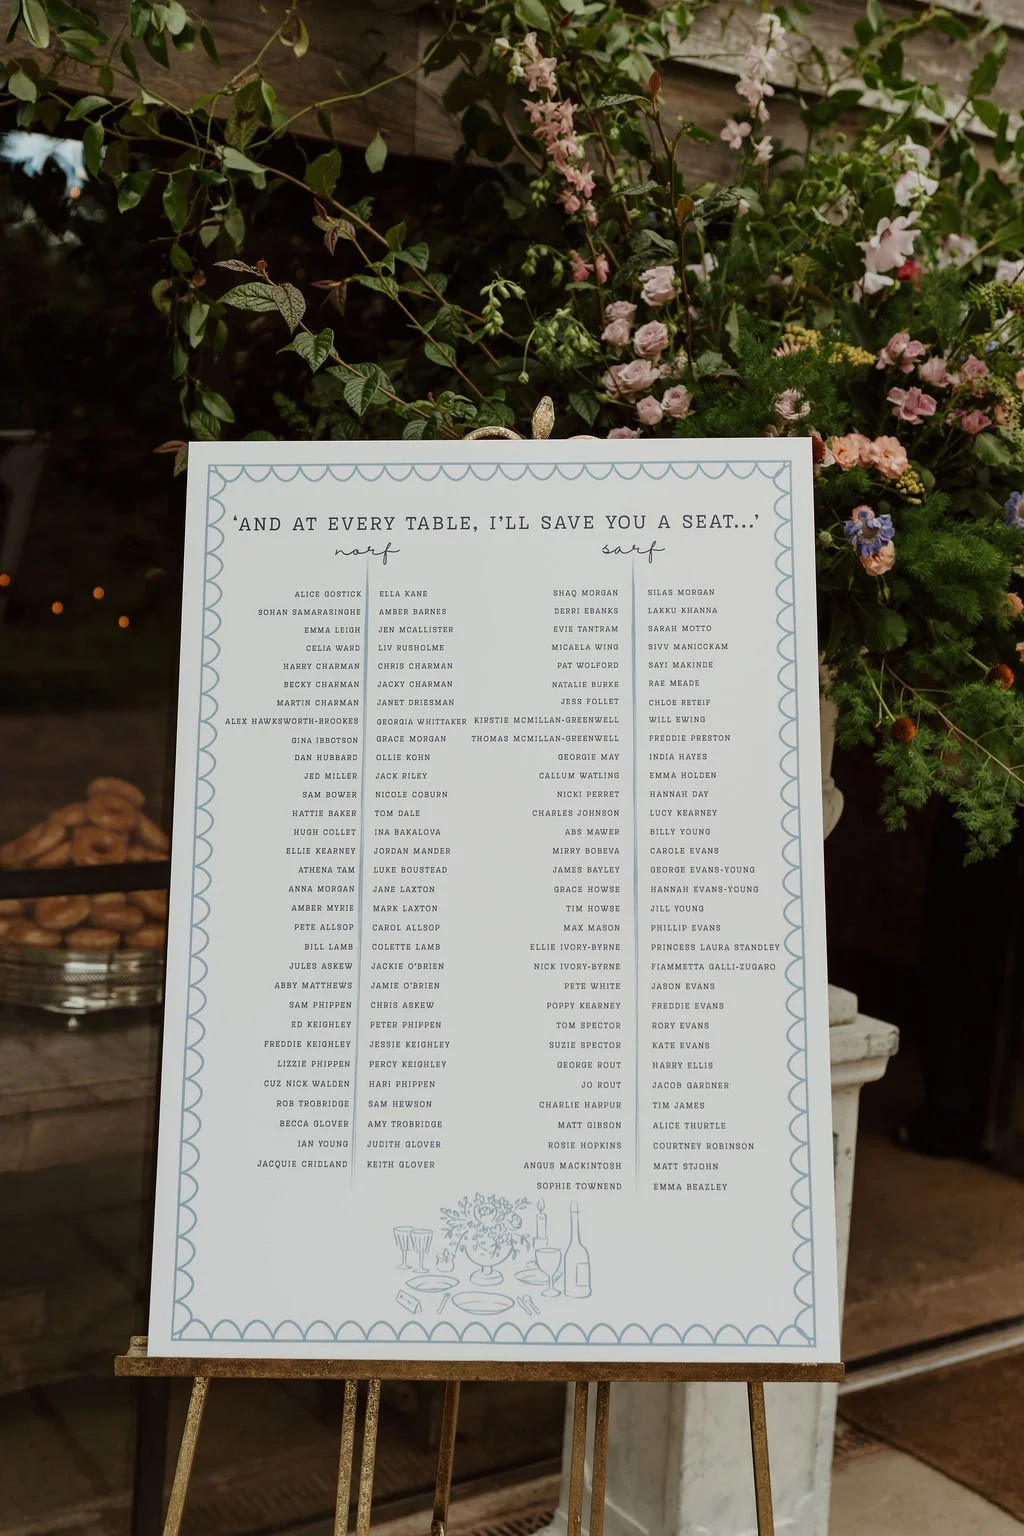 'AND AT EVERY TABLE, I'LL SAVE YOU A SEAT...'
norf
sarf
ALICE GOSTICK ELLA KANE
SOHAN SAMARASINGHE AMBER BARNES
EMMA LEIGH JEN MCALLISTER
CELIA WARD LIV RUSHOLME
HARRY CHARMAN CHRIS CHARMAN
BECKY CHARMAN JACKY CHARMAN
MARTIN CHARMAN JANET DRIESMAN
ALEX HAWKSWORTH-BROOKES GEORGIA WHITTAKER
GINA IBBOTSON GRACE MORGAN
DAN HUBBARD OLLIE KOHN
JED MILLER JACK RILEY
SAM BOWER NICOLE COBURN
HATTIE BAKER TOM DALE
HUGH COLLET INA BAKALOVA
ELLIE KEARNEY JORDAN MANDER
ATHENA TAM LUKE BOUSTEAD
ANNA MORGAN JANE LAXTON
AMBER MYRIE MARK LAXTON
PETE ALLSOP CAROL ALLSOP
BILL LAMB COLETTE LAMB
JULES ASKEW JACKIE O'BRIEN
ABBY MATTHEWS JAMIE O'BRIEN
SAM PHIPPEN CHRIS ASKEW
ED KEIGHLEY PETER PHIPPEN
FREDDIE KEIGHLEY JESSIE KEIGHLEY
LIZZIE PHIPPEN PERCY KEIGHLEY
CUZ NICK WALDEN HARI PHIPPEN
ROB TROBRIDGE SAM HEWSON
BECCA GLOVER AMY TROBRIDGE
IAN YOUNG JUDITH GLOVER
JACQUIE CRIDLAND KEITH GLOVER
SHAQ MORGAN SILAS MORGAN
DERRI EBANKS LAKKU KHANNA
EVIE TANTRAM SARAH MOTTO
MICAELA WING SIVV MANICCKAM
PAT WOLFORD SAYI MAKINDE
NATALIE BURKE RAE MEADE
JESS FOLLET CHLOE RETEIF
KIRSTIE MCMILLAN-GREENWELL WILL EWING
THOMAS MCMILLAN-GREENWELL FREDDIE PRESTON
GEORGIE MAY INDIA HAYES
CALLUM WATLING EMMA HOLDEN
NICKI PERRET HANNAH DAY
CHARLES JOHNSON LUCY KEARNEY
ABS MAWER BILLY YOUNG
MIRRY BOBEVA CAROLE EVANS
JAMES BAYLEY GEORGE EVANS-YOUNG
GRACE HOWSE HANNAH EVANS-YOUNG
TIM HOWSE JILL YOUNG
MAX MASON PHILLIP EVANS
ELLIE IVORY-BYRNE PRINCESS LAURA STANDLEY
NICK IVORY-BYRNE FIAMMETTA GALLI-ZUGARO
PETE WHITE JASON EVANS
POPPY KEARNEY FREDDIE EVANS
TOM SPECTOR RORY EVANS
SUZIE SPECTOR KATE EVANS
GEORGE ROUT HARRY ELLIS
JO ROUT JACOB GARDNER
CHARLIE HARPUR TIM JAMES
MATT GIBSON ALICE THURTLE
ROSIE HOPKINS COURTNEY ROBINSON
ANGUS MACKINTOSH MATT STJOHN
SOPHIE TOWNEND EMMA BEAZLEY